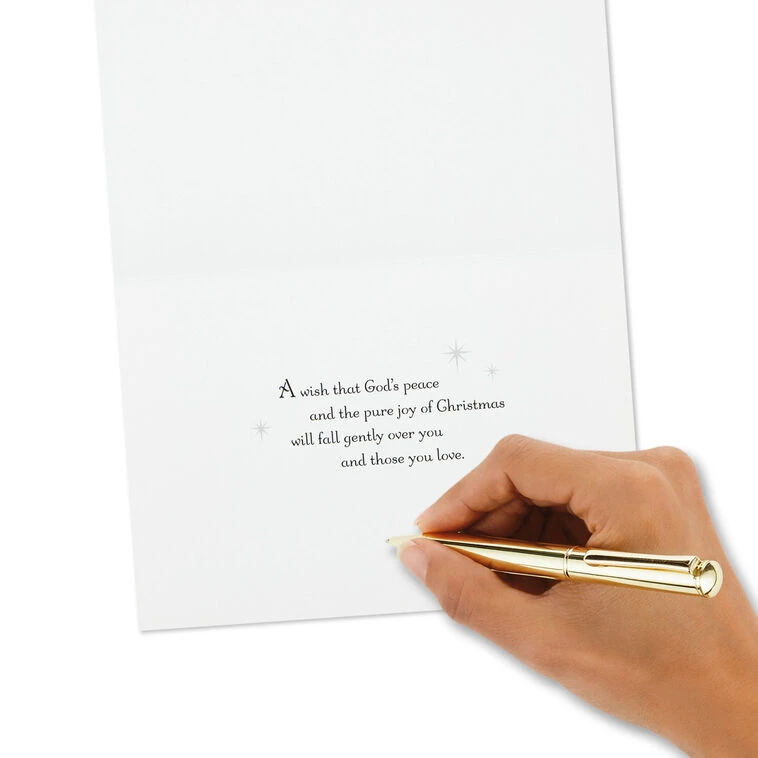 A wish that God's peace
and the pure joy of Christmas
will fall gently over you
and those you love.